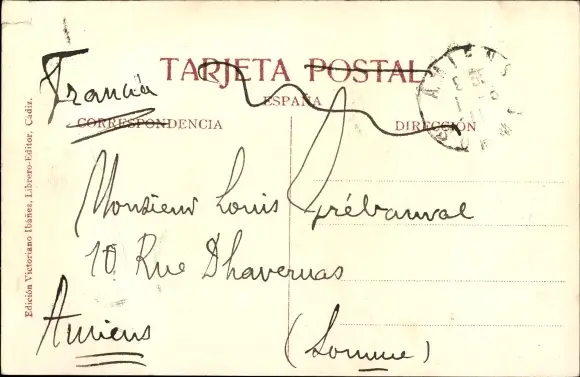 TARJETA POSTAL
ESPAÑA
Francia
CORRESPONDENCIA
DIRECCIÓN
Monsieur Louis Grébauval
10. Rue Dhavernas
Amiens
(Somme)
AMIENS
Edición Victoriano Ibáñez, Librero-Editor, Cádiz.